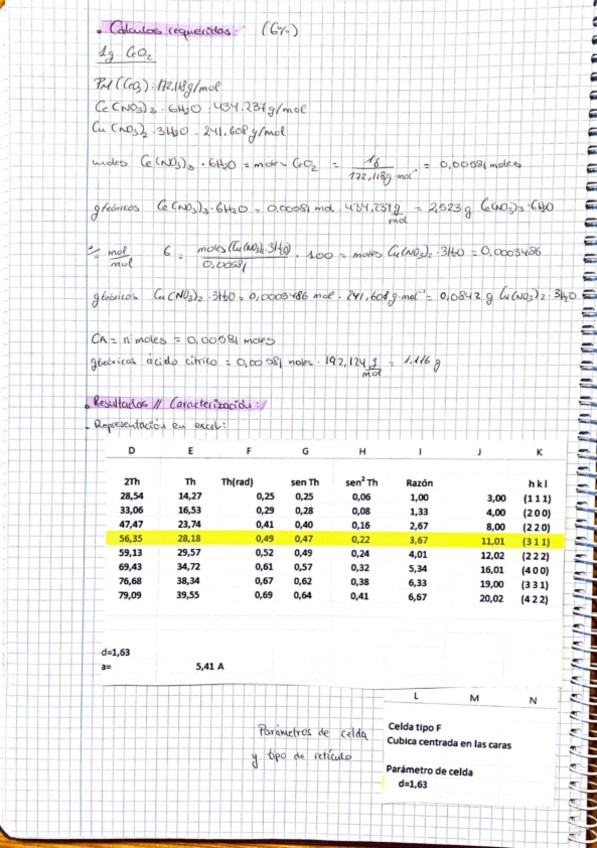 • Cálculos requeridos: (6%)
1g CeO2
PM (CeO2): 172,118 g/mol
Ce(NO3)3 · 6H2O : 434.237 g/mol
Cu (NO3)2 · 3H2O · 241,608 g/mol
moles Ce(NO3)3 · 6H2O = moles CeO2 = 1g / 172,118 g·mol⁻¹ = 0,00581 moles
g teóricos Ce(NO3)3·6H2O = 0,00581 mol · 434,237 g/mol = 2,523 g Ce(NO3)3·6H2O
% mol/mol 6 = moles (Cu(NO3)2·3H2O) / 0,00581 · 100 = moles Cu(NO3)2·3H2O = 0,0003486
g teóricos Cu(NO3)2·3H2O = 0,0003486 mol · 241,608 g·mol⁻¹ = 0,0842 g Cu(NO3)2·3H2O
CA = nº moles = 0,00581 moles
g teóricos ácido cítrico = 0,00581 moles · 192,124 g/mol = 1.116 g
• Resultados // Caracterización://
- Representación en excel:
D E F G H I J K
2Th Th Th(rad) sen Th sen² Th Razón h k l
28,54 14,27 0,25 0,25 0,06 1,00 3,00 (1 1 1)
33,06 16,53 0,29 0,28 0,08 1,33 4,00 (2 0 0)
47,47 23,74 0,41 0,40 0,16 2,67 8,00 (2 2 0)
56,35 28,18 0,49 0,47 0,22 3,67 11,01 (3 1 1)
59,13 29,57 0,52 0,49 0,24 4,01 12,02 (2 2 2)
69,43 34,72 0,61 0,57 0,32 5,34 16,01 (4 0 0)
76,68 38,34 0,67 0,62 0,38 6,33 19,00 (3 3 1)
79,09 39,55 0,69 0,64 0,41 6,67 20,02 (4 2 2)
d=1,63
a= 5,41 A
Parámetros de celda
y tipo de retículo
L M N
Celda tipo F
Cubica centrada en las caras
Parámetro de celda
d=1,63